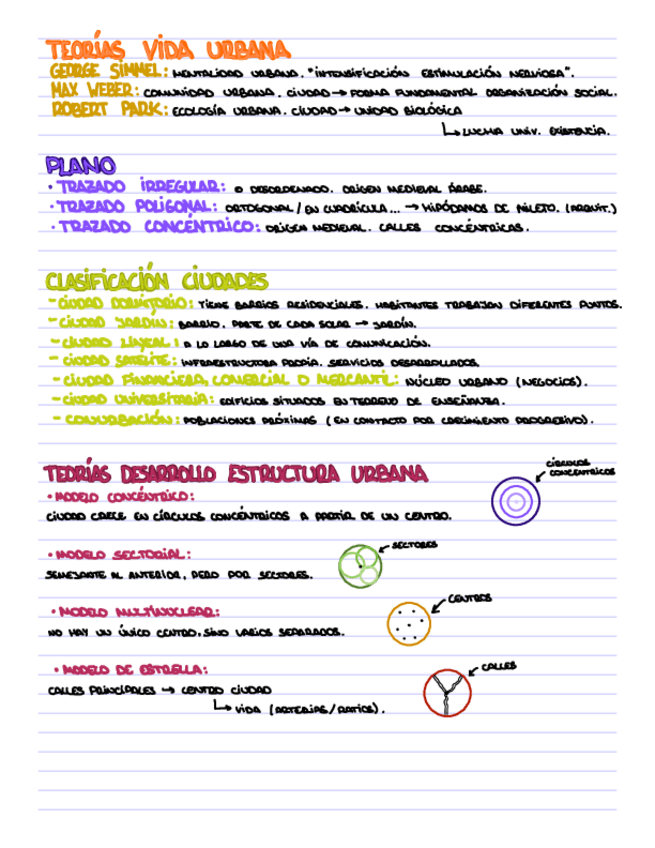 TEORÍAS VIDA URBANA
GEORGE SIMMEL: MENTALIDAD URBANA. "INTENSIFICACIÓN ESTIMULACIÓN NERVIOSA".
MAX WEBER: COMUNIDAD URBANA. CIUDAD → FORMA FUNDAMENTAL ORGANIZACIÓN SOCIAL.
ROBERT PARK: ECOLOGÍA URBANA. CIUDAD → UNIDAD BIOLÓGICA
↳ LUCHA UNIV. EXISTENCIA.
PLANO
· TRAZADO IRREGULAR: O DESORDENADO. ORIGEN MEDIEVAL ÁRABE.
· TRAZADO POLIGONAL: ORTOGONAL / EN CUADRÍCULA... → HIPÓDAMOS DE MILETO. (ARQUIT.)
· TRAZADO CONCÉNTRICO: ORIGEN MEDIEVAL. CALLES CONCÉNTRICAS.
CLASIFICACIÓN CIUDADES
- CIUDAD DORMITORIO: TIENE BARRIOS RESIDENCIALES. HABITANTES TRABAJAN DIFERENTES PUNTOS.
- CIUDAD JARDÍN: BARRIO. PARTE DE CADA SOLAR → JARDÍN.
- CIUDAD LINEAL: A LO LARGO DE UNA VÍA DE COMUNICACIÓN.
- CIUDAD SATÉLITE: INFRAESTRUCTURA PROPIA. SERVICIOS DESARROLLADOS.
- CIUDAD FINANCIERA, COMERCIAL O MERCANTIL: NÚCLEO URBANO (NEGOCIOS).
- CIUDAD UNIVERSITARIA: EDIFICIOS SITUADOS EN TERRENO DE ENSEÑANZA.
- CONURBACIÓN: POBLACIONES PRÓXIMAS (EN CONTACTO POR CRECIMIENTO PROGRESIVO).
TEORÍAS DESARROLLO ESTRUCTURA URBANA
CÍRCULOS
CONCENTRICOS
· MODELO CONCÉNTRICO:
CIUDAD CRECE EN CÍRCULOS CONCÉNTRICOS A PARTIR DE UN CENTRO.
· MODELO SECTORIAL:
SECTORES
SEMEJANTE AL ANTERIOR, PERO POR SECTORES.
· MODELO MULTINUCLEAR:
CENTROS
NO HAY UN ÚNICO CENTRO, SINO VARIOS SEPARADOS.
· MODELO DE ESTRELLA:
CALLES
CALLES PRINCIPALES → CENTRO CIUDAD
↳ VIDA (ARTERIAS/RADIOS).